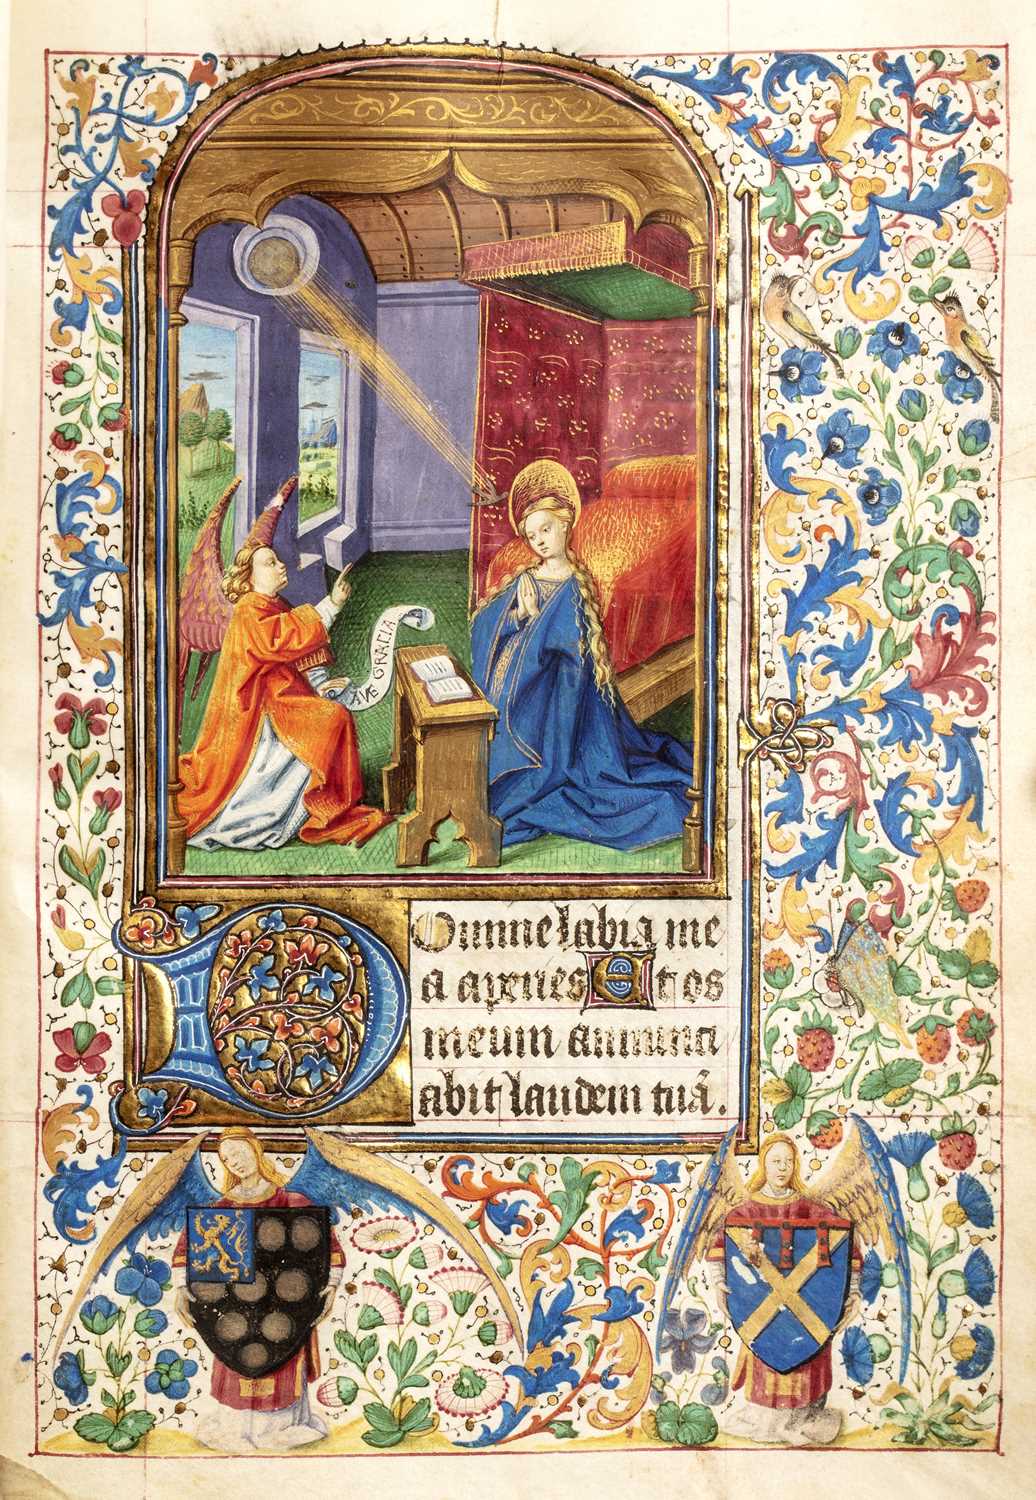 AVE GRACIA
Domine labia me
a aperies Et os
meum annunci
abit laudem tuã.